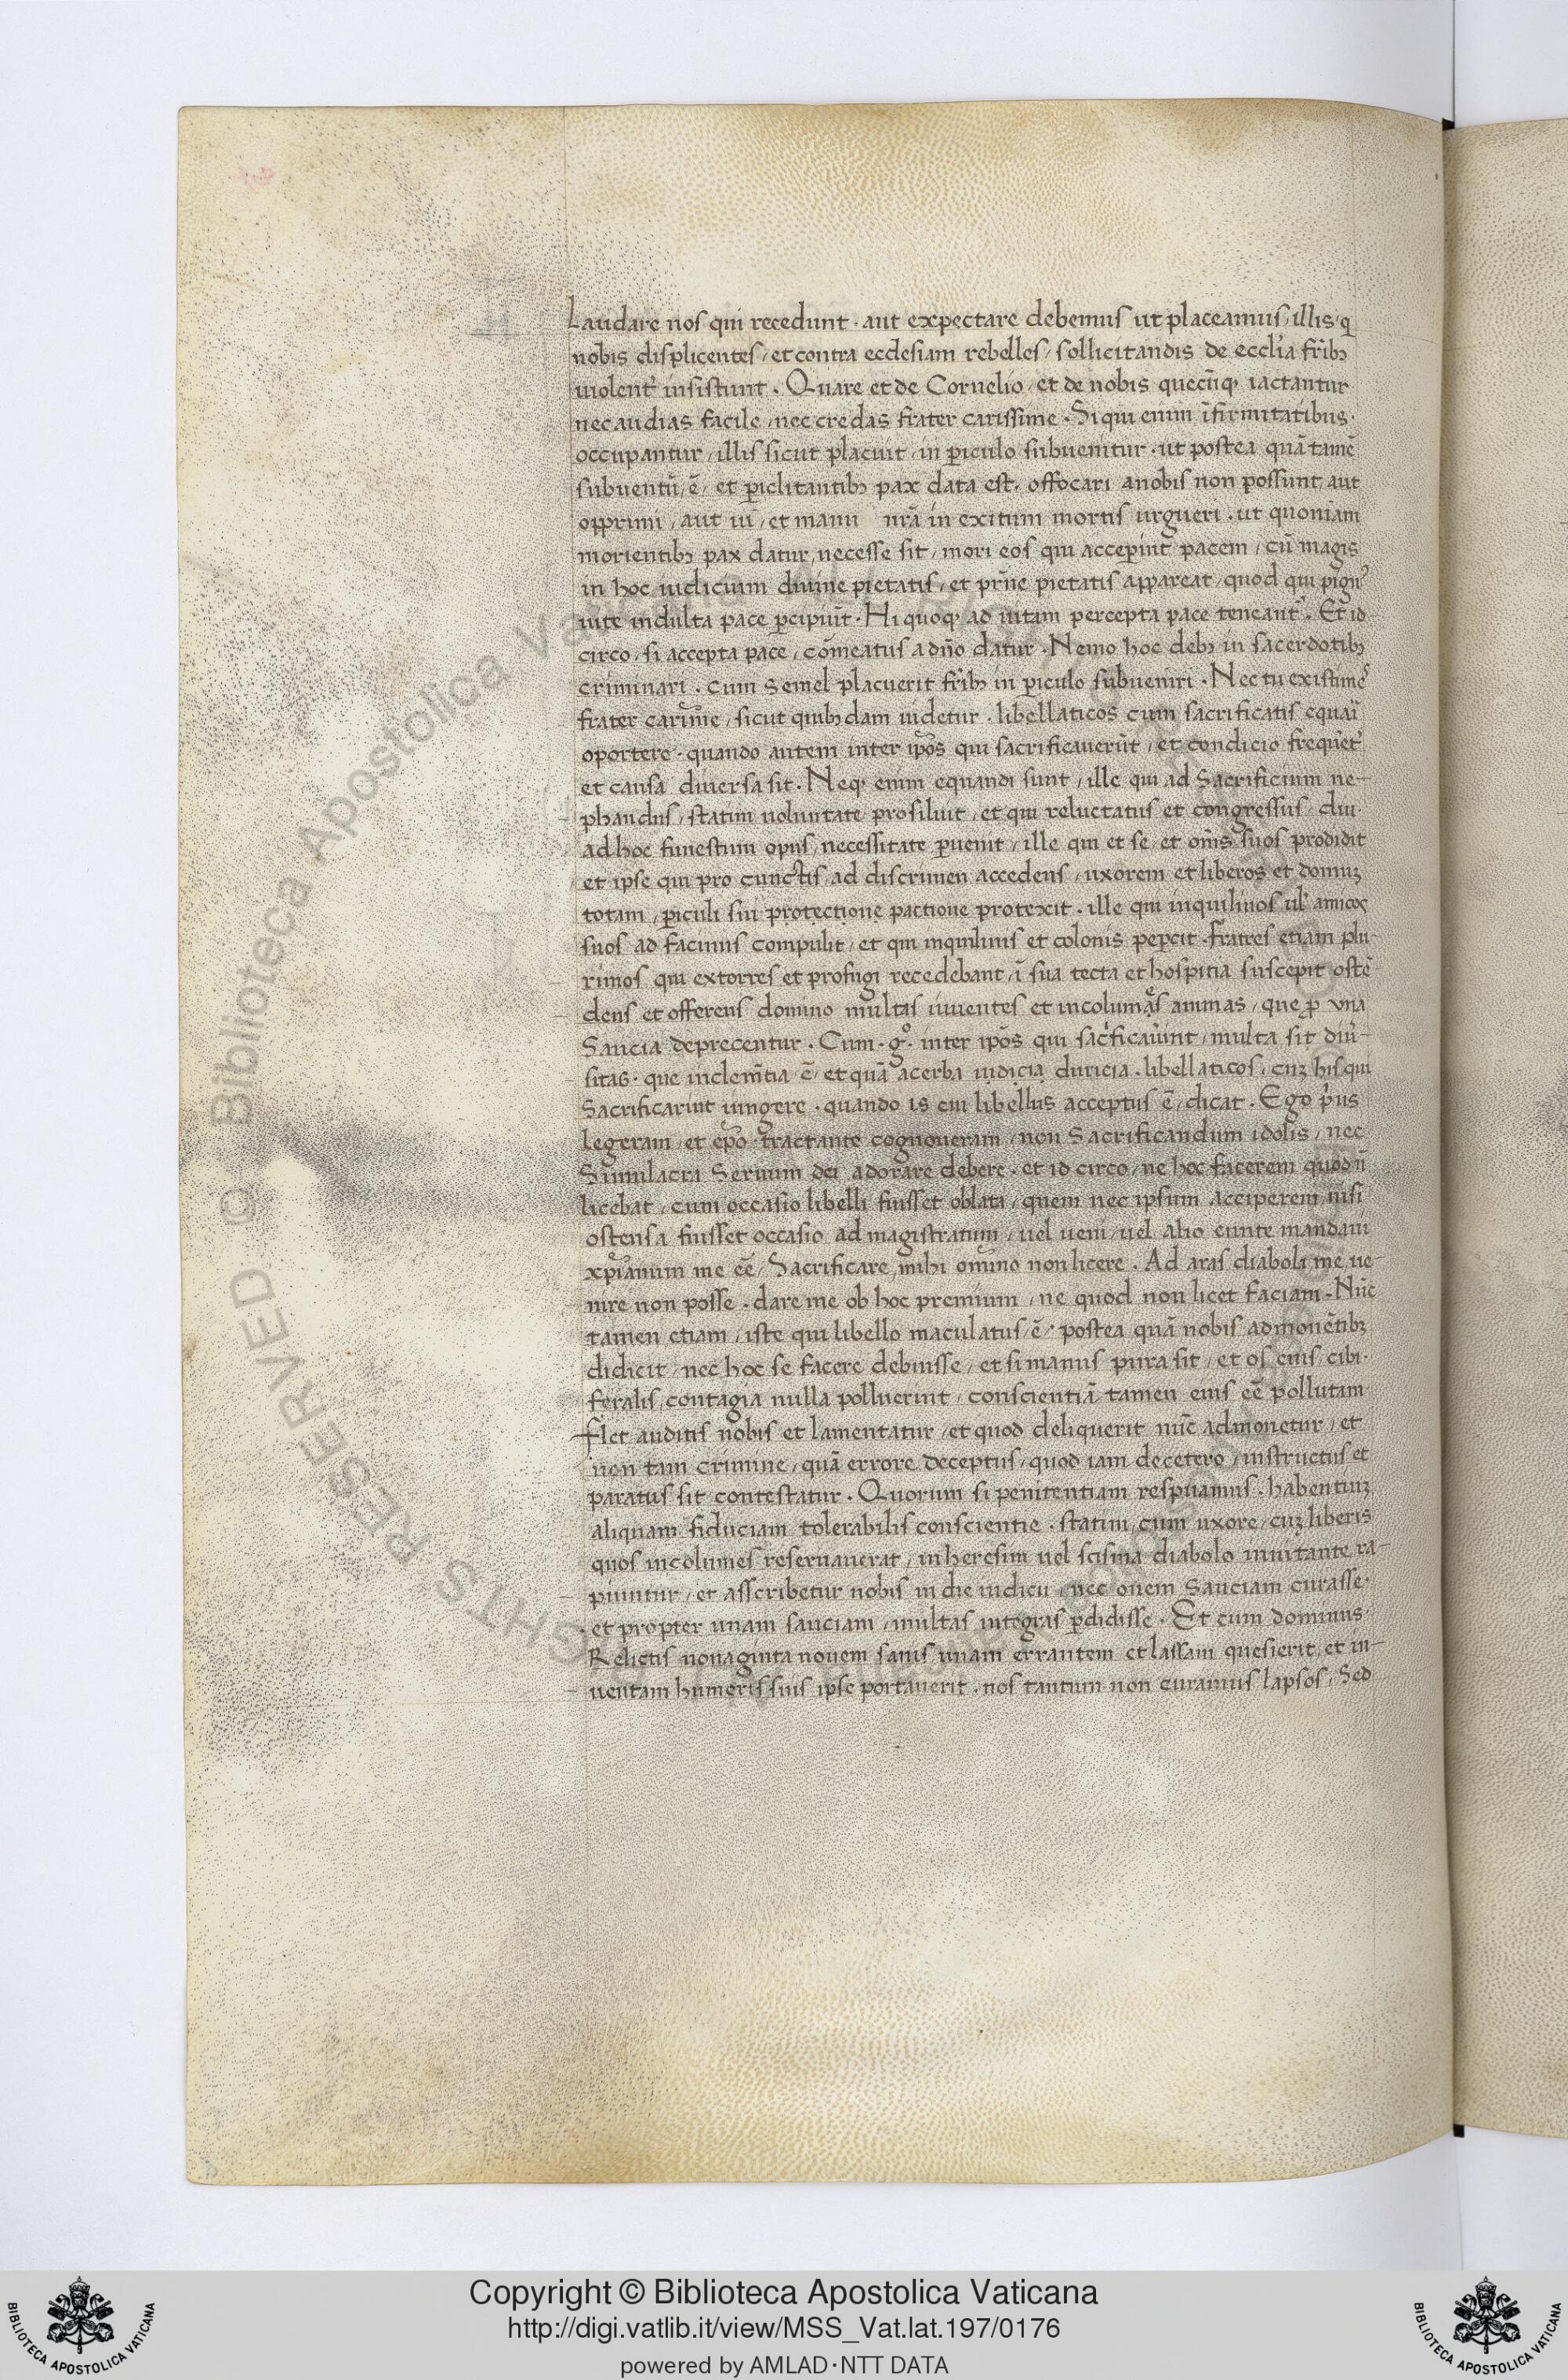 Laudare nos qui recedunt · aut expectare debemus ut placeamus / illis · q
nobis displicentes / et contra ecclesiam rebelles / sollicitandis de eccl'ia fr̄ibꝫ
uiolent' insistunt . Quare et de Cornelio / et de nobis quecūqꝫ iactantur
nec audias facile / nec credas frater carissime . Si qui enim īfirmitatibus ·
occupantur / illis sicut placuit / in ꝑiculo subuenitur · ut postea quā tamē
subuentū / ē / et ꝑiclitantibꝫ pax data est . offocari anobis non possunt / aut
opprimi / aut ui / et manu nr̄a in exitum mortis urgueri . ut quoniam
morientibꝫ pax datur / necesse sit / mori eos qui acceꝑint pacem / cū magis
in hoc iudicium diuine pietatis / et pr̄ne pietatis appareat / quod qui pign'
uite indulta pace ꝑcipiūt · Hi quoqꝫ ad uitam percepta pace teneant' . Et id
circo / si accepta pace / cōmeatus a dn̄o datur · Nemo hoc debꝫ in sacerdotibꝫ
criminari . cum semel placuerit fr̄ibꝫ in ꝑiculo subueniri · Nec tu existime'
frater carīme / sicut quibꝫdam uidetur . libellaticos cum sacrificatis equari
oportere · quando autem inter ip̄os qui sacrificauerūt / et condicio frequēt'
et causa diuersa sit . Neqꝫ enim equandi sunt / ille qui ad Sacrificium ne-
phandus / statim uoluntate prosiluit / et qui reluctatus et congressus / diu ·
ad hoc funestum opus / necessitate ꝑuenit / ille qui et se / et om̄s suos prodidit
et ipse qui pro cunctis / ad discrimen accedens / uxorem et liberos et domuꝫ
totam / ꝑiculi sui protectione pactione protexit . ille qui inquilinos ul' amicoꝝ
suos ad facinus compulit / et qui inquilinis et colonis peꝑcit . Fratres etiam plu-
rimos qui extorres et profugi recedebant / ī sua tecta et hospitia suscepit ostē-
dens et offerens domino multas uiuentes et incolumas animas / que ꝓ una
Saucia deprecentur . Cum · gͦ · inter ip̄os qui sac'ficauīint / multa sit diu'-
sitas · que inclem̄tia ē / et quā acerba iudicia duricia . libellaticos / cuꝫ his qui
Sacrificarint iungere · quando is cui libellus acceptus ē / dicat . Ego p'us
legeram / et ep̄o tractante cognoueram / non Sacrificandum idolis / nec
Simulacra Seruum dei adorare debere · et id circo / ne hoc facerem quod n̄
licebat / cum occasio libelli fuisset oblata / quem nec ipsum acciperem / nisi
ostensa fuisset occasio ad magistratum / uel ueni / uel alio eunte mandaui
xp̄ianum me eē / Sacrificare mihi om̄ino non licere . Ad aras diaboli me ue-
nire non posse . dare me ob hoc premium / ne quod non licet faciam . Nūc
tamen etiam / iste qui libello maculatus / ē / postea quā nobis admonētibꝫ
didicit / nec hoc se facere debuisse / et si manus pura sit / et os eius / cibi ·
feralis / contagia nulla polluerint / conscientiā tamen eius eē pollutam
Flet auditis nobis et lamentatur / et quod deliquerit nūc admonetur / et
non tam crimine / quā errore deceptus / quod iam decetero / instructus et
paratus sit contestatur . Quorum si penitentiam respuamus . habentiuꝫ
aliquam fiduciam tolerabilis conscientie . statim / cum uxore / cuꝫ liberis
quos incolumes reseruauerat / in heresim uel scisma diabolo inuitante ra-
piuntur / et asscribetur nobis in die iudicii / nec ouem Sauciam curasse ·
et propter unam sauciam / multas integras ꝑdidisse . Et cum dominus ·
Relictis nonaginta nouem sanis unam errantem et lassam quesierit / et in-
uentam humeris suis ipse portauerit . nos tantum non curamus lapsos / Sed
Copyright © Biblioteca Apostolica Vaticana
http://digi.vatlib.it/view/MSS_Vat.lat.197/0176
powered by AMLAD·NTT DATA